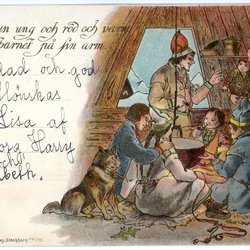 un ung och röd och varm
barnet på sin arm.
lad och god
lönskas
Lisa af
org Harry
Thy
beth.